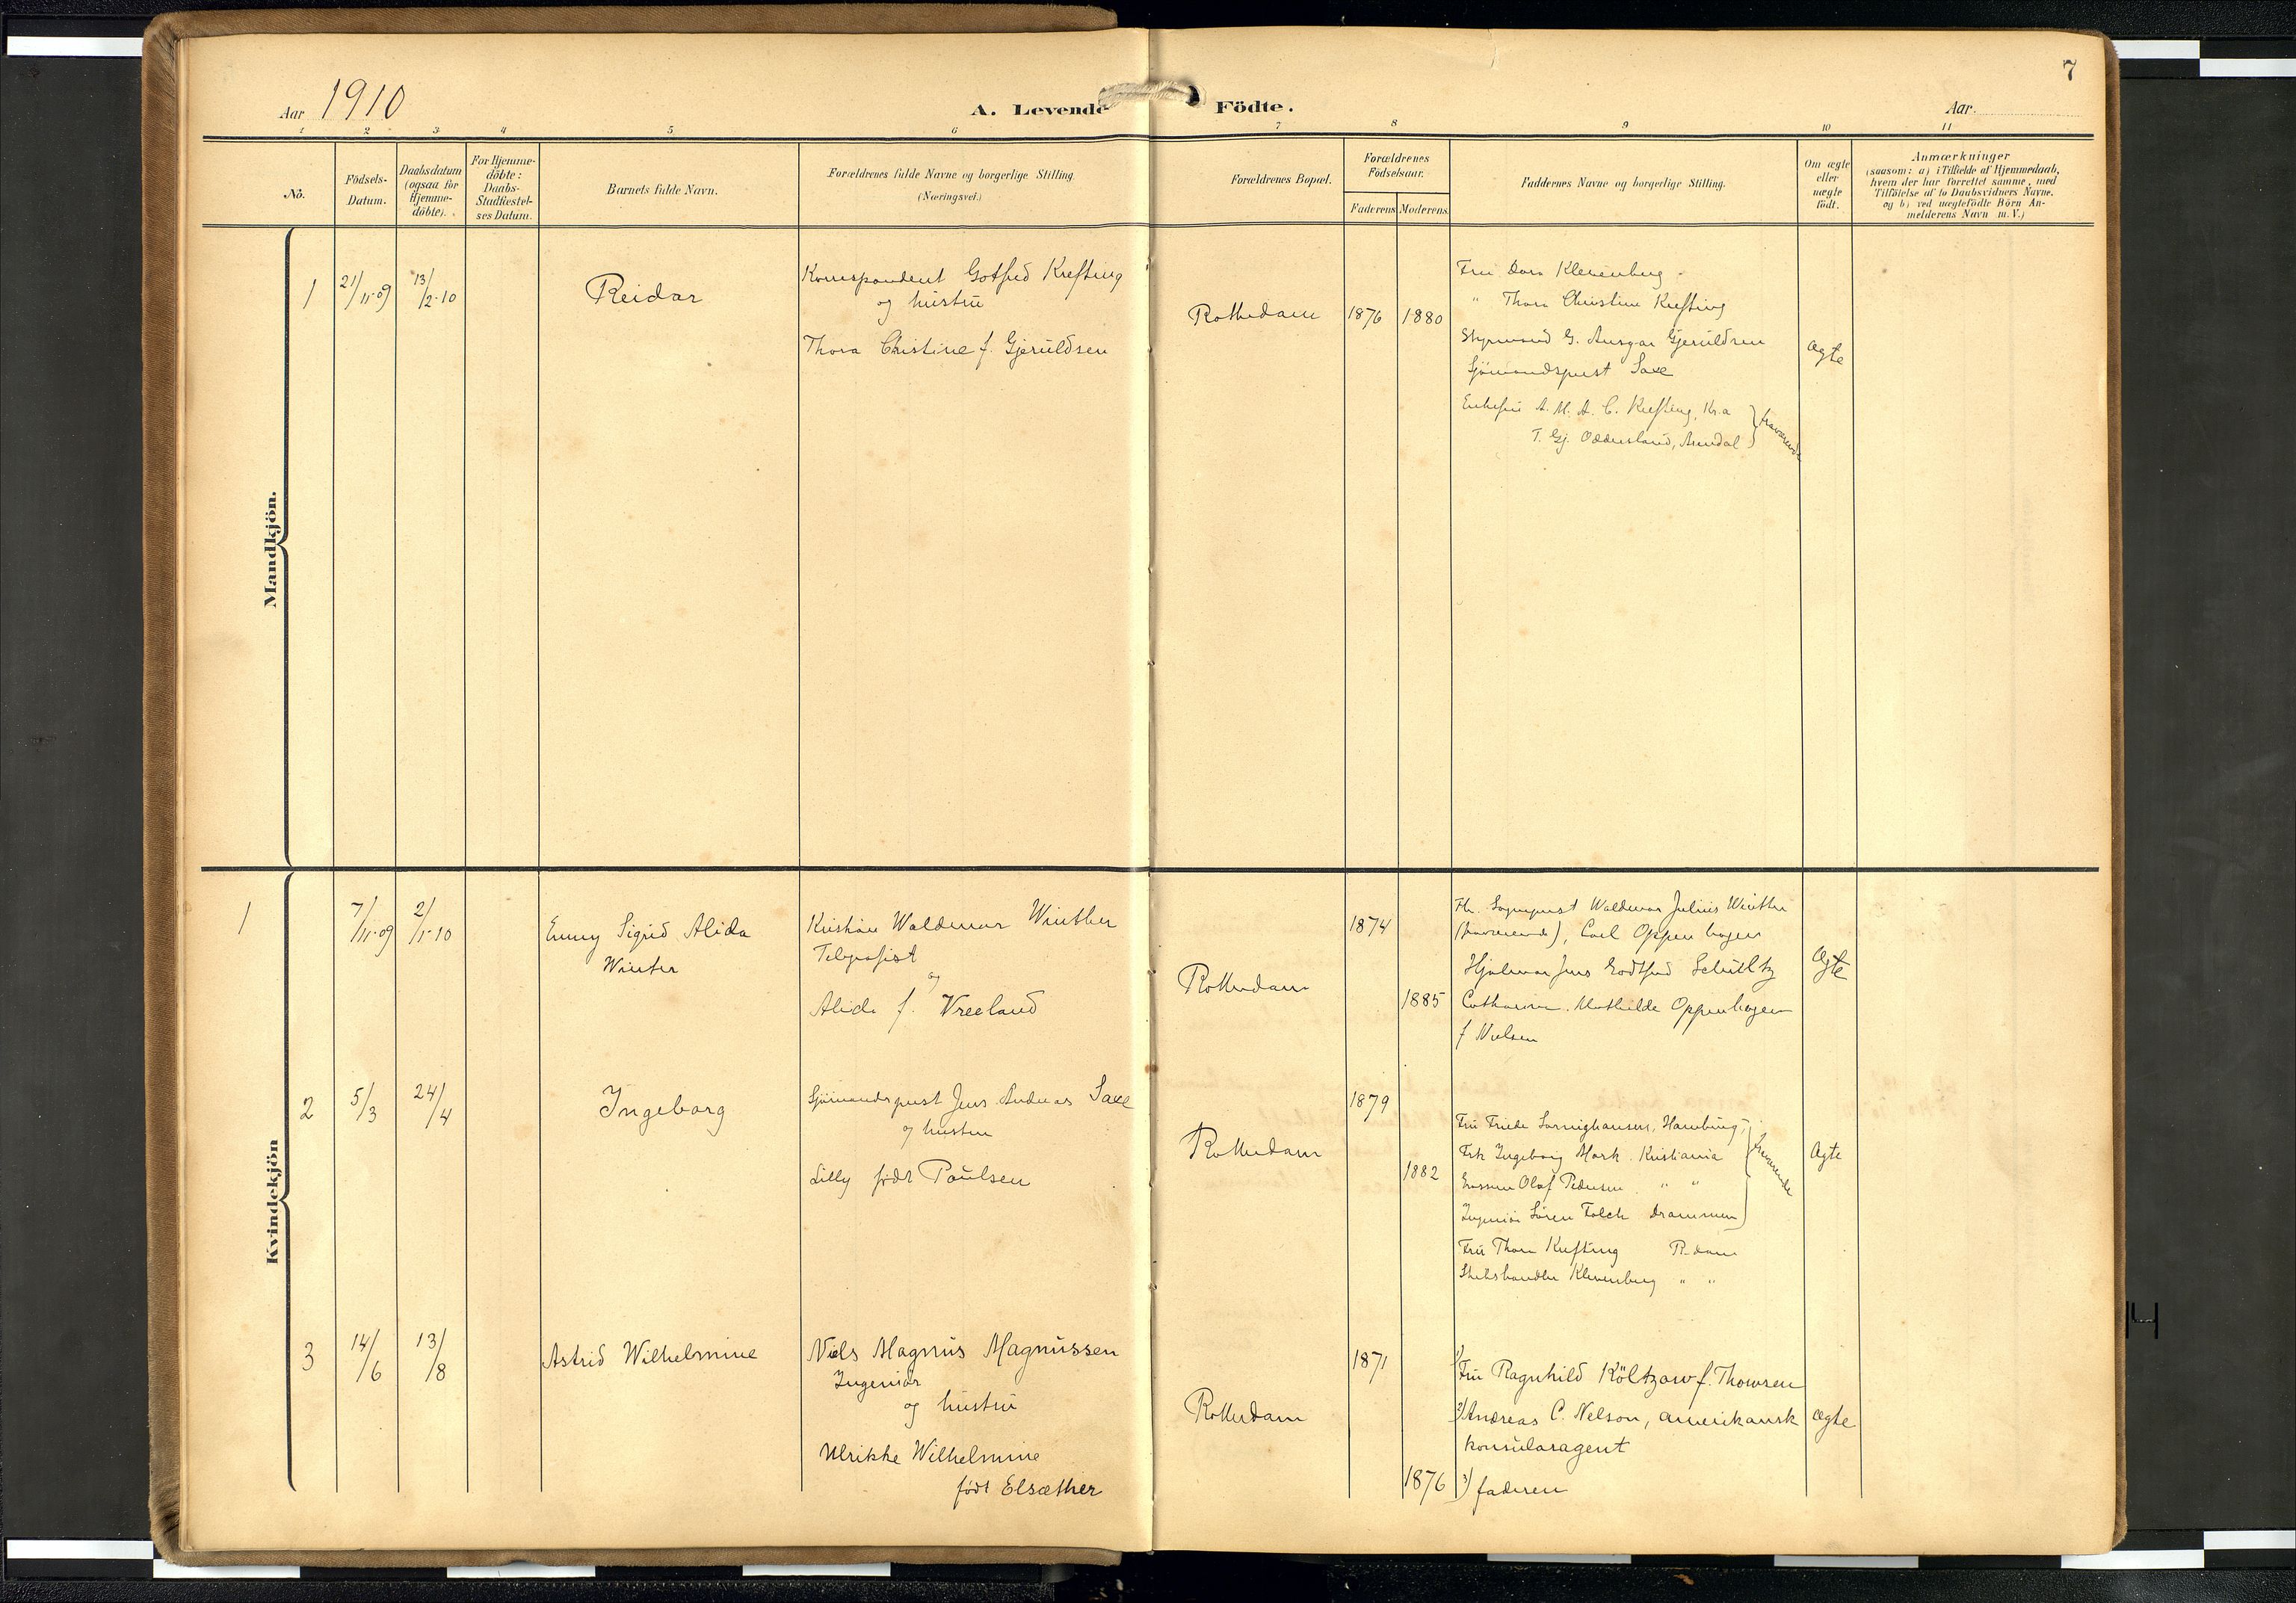 Aar 1910
A. Levende Födte.
Aar.
7
1 2 3 4 5 6 7 8 9 10 11
No.
Födsels-
Datum.
Daabsdatum
(ogsaa for
Hjemme-
döbte).
For Hjemme-
döbte:
Daabs-
Stadfæstel-
ses Datum.
Barnets fulde Navn.
Forældrenes fulde Navne og borgerlige Stilling.
(Næringsvei.)
Forældrenes Bopæl.
Forældrenes
Födselsaar.
Faderens Moderens.
Faddernes Navne og borgerlige Stilling.
Om ægte
eller
uægte
födt.
Anmærkninger
(saasom: a) i Tilfælde af Hjemmedaab,
hvem der har forrettet samme, med
Tilföielse af to Daabsvidners Navne.
og b) ved uægtefödte Börn An-
melderens Navn m. V.)
Mandkjön.
1
21/11-09
13/2-10
Reidar
Korrespondent Gotfred Krefting
og hustru
Thora Christine f. Gjeruldsen
Rotterdam
1876
1880
Fru Dora Klevenberg
" Thora Christine Krefting
Styrmand G. Ansgar Gjeruldsen
Sjömandsprest Saxe
Enkefru A. M. A. C. Krefting, Kr.a
T. Gj. Oddersland, Arendal
fraværende
ægte
Kvindekjön
1
7/11-09
2/1-10
Emmy Sigrid Alida
Winter
Kristian Waldemar Winther
Telegrafist
og
Alida f. Vreeland
Rotterdam
1874
1885
Hr. Sogneprest Waldemar Julius Winther
(fraværende), Carl Oppenhagen
Hjalmar Jens Godtfred Schultz
Catharina Mathilde Oppenhagen
f Nielsen
Ægte
2
5/3
24/4
Ingeborg
Sjömandsprest Jens Andreas Saxe
og hustru
Lilly född Paulsen
Rotterdam
1879
1882
Fru Friede Sarnighausen, Hamburg,
Frk Ingeborg Mork. Kristiania
Olaf Pedersen " "
Ingeniör Sören Falch Drammen
fraværende
Fru Thora Krefting R.dam
Skibshandler Klevenberg " "
Ægte
3
14/6
13/8
Astrid Wilhelmine
Niels Magnus Magnussen
Ingeniör
og hustru
Ulrikke Wilhelmine
född Elsæther
Rotterdam
1871
1876
1) Fru Ragnhild Költzow f. Thomsen
2) Andreas C. Nelson, amerikansk
konsularagent
3) faderen
ægte